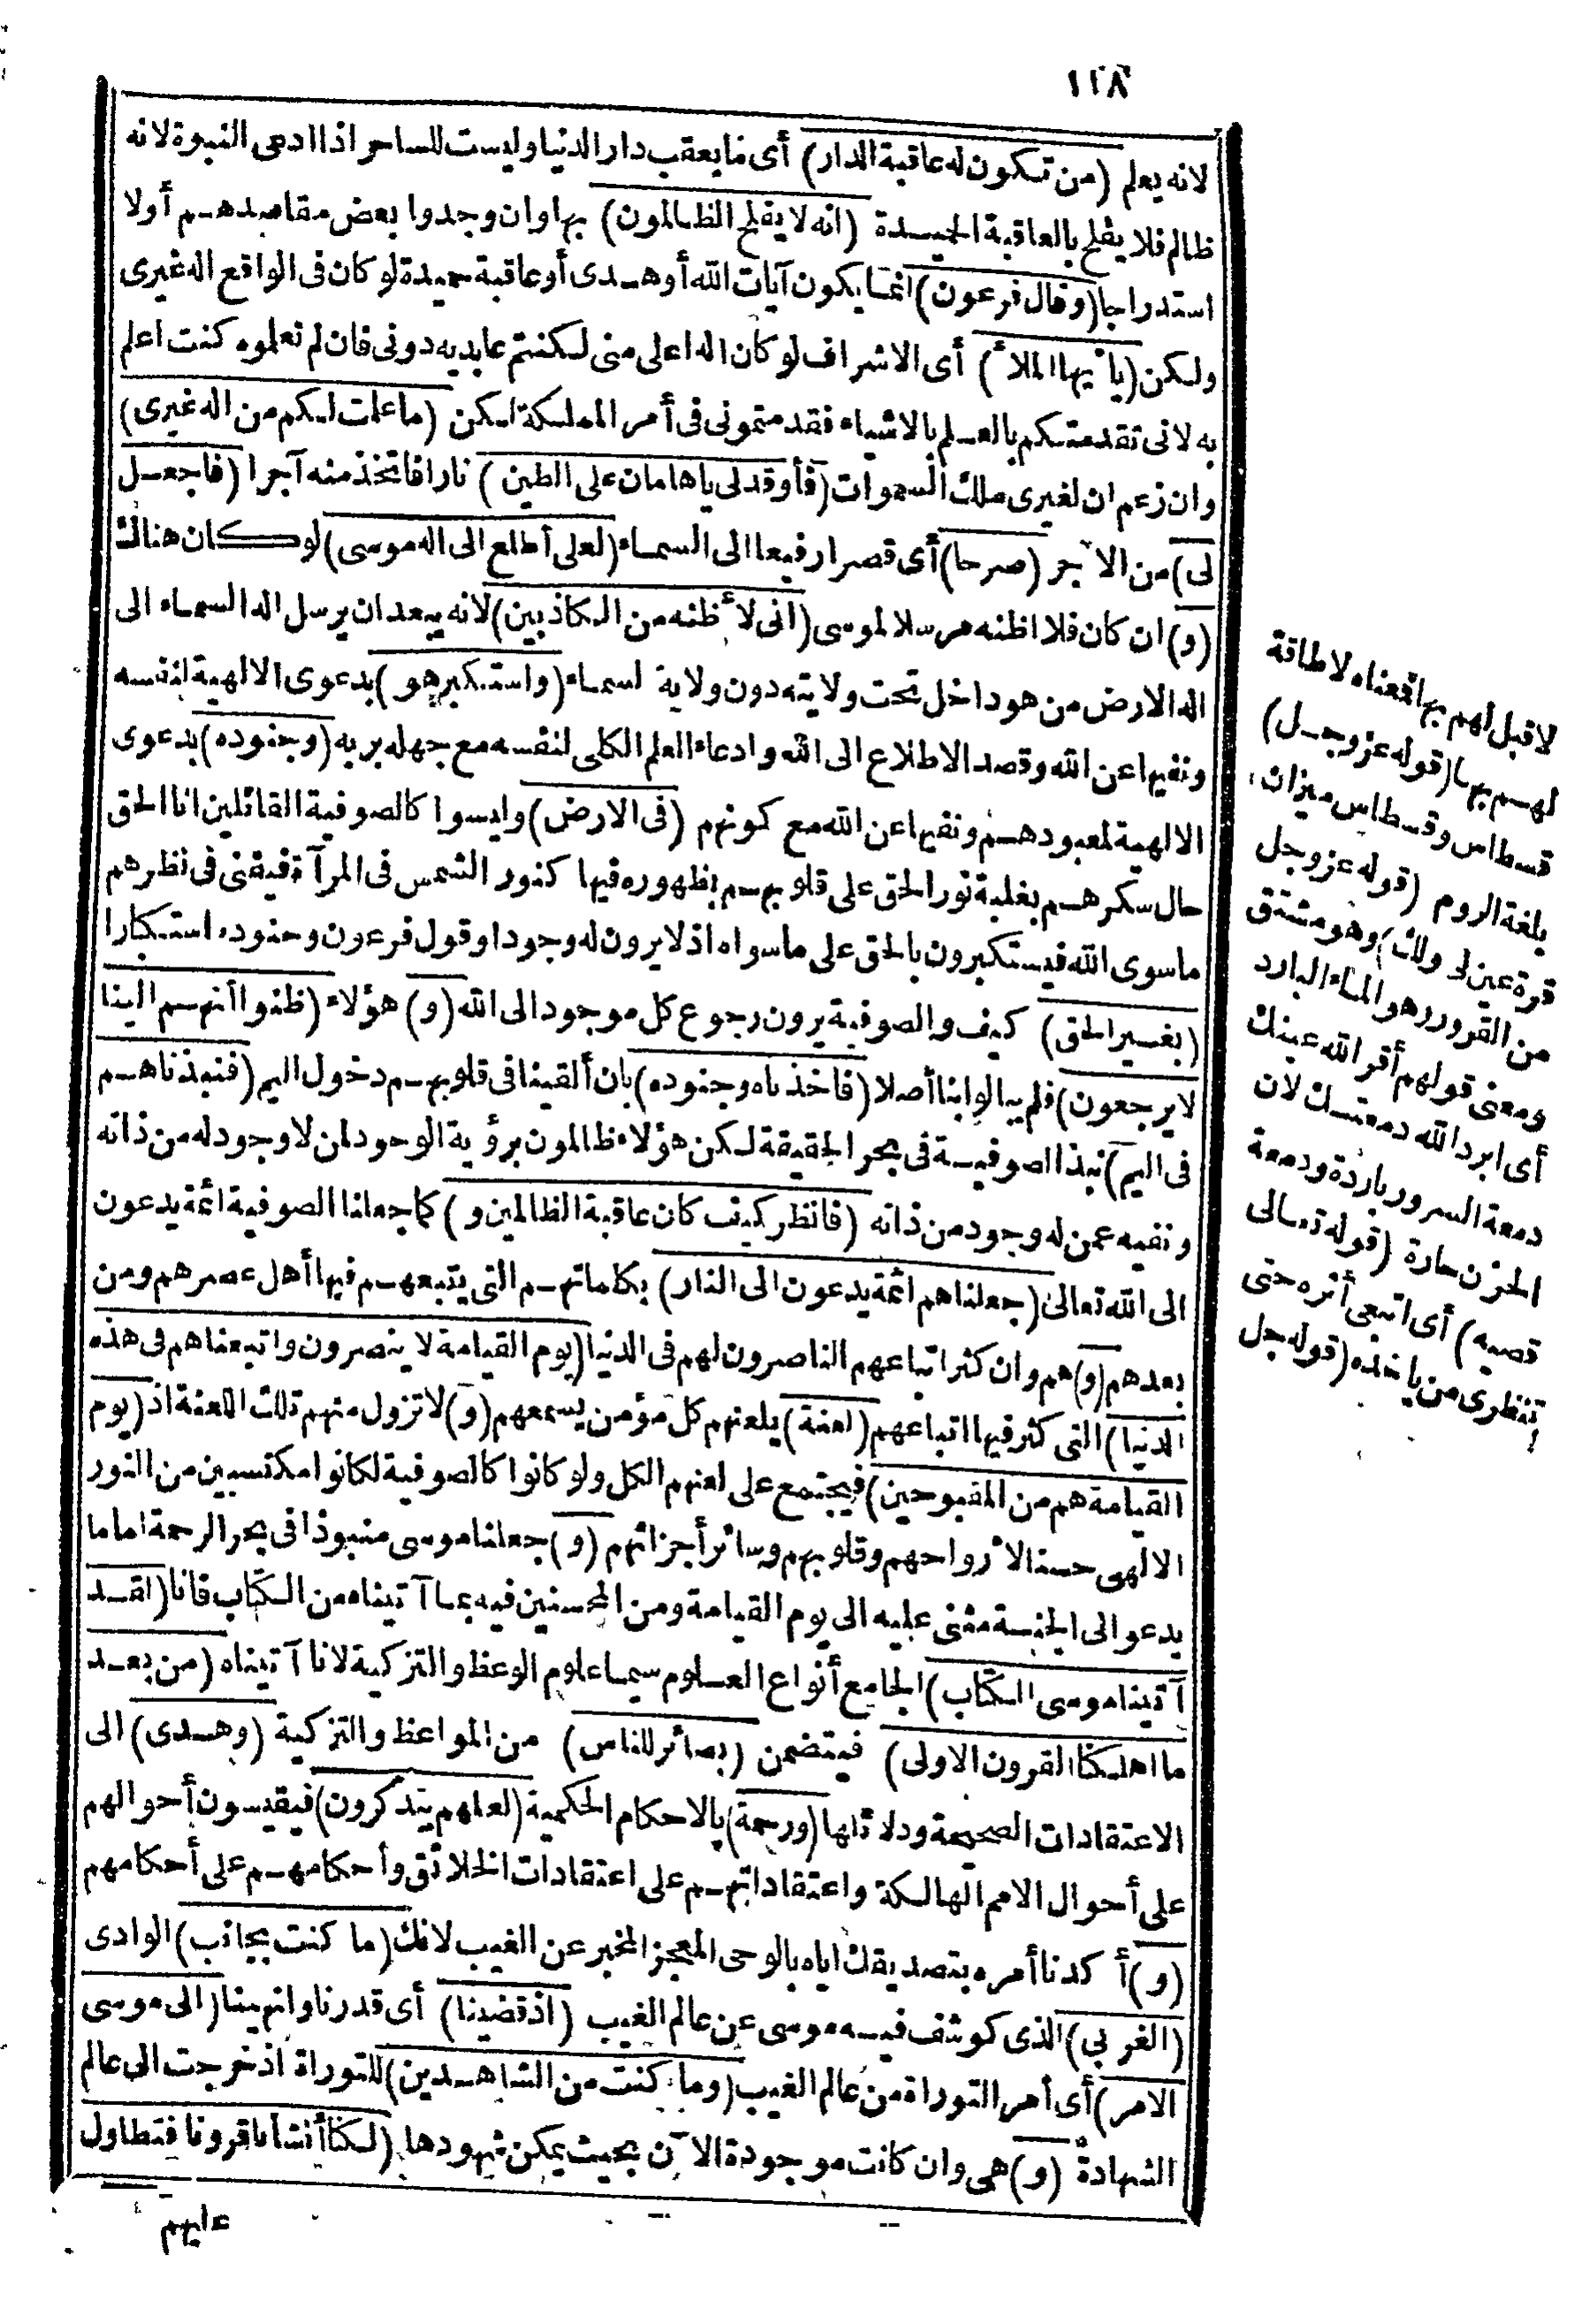 ١٢٨
لانه يعلم (من تكون له عاقبة الدار) أى ما يعقب دار الدنيا وليست للساحر اذا ادعى النبوة لانه
ظالم فلا يفلح بالعاقبة الحميدة (انه لا يفلح الظالمون) بها وان وجدوا بعض مقاصدهم أولا
استدراجا (وقال فرعون) انما يكون آيات الله أو هدى أو عاقبة حميدة لو كان فى الواقع اله غيرى
ولكن (ياأيها الملأ) أى الاشراف لو كان اله اعلى منى لكنتم عابديه دونى فان لم تعلموه كنت اعلم
به لانى تقدمتكم بالعلم بالاشياء فقدمتمونى فى أمر المملكة لكن (ما علمت لكم من اله غيرى)
وان زعم ان لغيرى ملك السموات (فأوقد لى ياهامان على الطين) نارا فاتخذ منه آجرا (فاجعل
لى) من الآجر (صرحا) أى قصرا رفيعا الى السماء (لعلى أطلع الى اله موسى) لو كان هناك
(و) ان كان فلا اظنه مرسلا لموسى (انى لأظنه من الكاذبين) لانه يبعد ان يرسل اله السماء الى
اله الارض من هو داخل تحت ولايته دون ولاية لسماء (واستكبر هو) بدعوى الالهية لنفسه
ونفيها عن الله وقصد الاطلاع الى الله وادعاء العلم الكلى لنفسه مع جهله بربه (وجنوده) بدعوى
الالهية لمعبودهم ونفيها عن الله مع كونهم (فى الارض) وليسوا كالصوفية القائلين انا الحق
حال سكرهم بغلبة نور الحق على قلوبهم بظهوره فيها كنور الشمس فى المرآة فيفنى فى نظرهم
ماسوى الله فيستكبرون بالحق على ما سواه اذ لا يرون له وجودا وقول فرعون وجنوده استكبارا
(بغير الحق) كيف والصوفية يرون رجوع كل موجود الى الله (و) هؤلاء (ظنوا أنهم الينا
لا يرجعون) فلم يبالوا بنا أصلا (فاخذناه وجنوده) بان ألقينا فى قلوبهم دخول اليم (فنبذناهم
فى اليم) نبذنا الصوفية فى بحر الحقيقة لكن هؤلاء ظالمون برؤية الوجود لمن لا وجود له من ذاته
ونفيه عمن له وجود من ذاته (فانظر كيف كان عاقبة الظالمين و) كما جعلنا الصوفية ائمة يدعون
الى الله تعالى (جعلناهم ائمة يدعون الى النار) بكلماتهم التى يتبعهم فيها أهل عصرهم ومن
بعدهم (و) هم وان كثر اتباعهم الناصرون لهم فى الدنيا (يوم القيامة لا ينصرون واتبعناهم فى هذه
الدنيا) التى كثر فيها اتباعهم (لعنة) يلعنهم كل مؤمن يسمعهم (و) لا تزول منهم تلك اللعنة اذ (يوم
القيامة هم من المقبوحين) فيجتمع على لعنهم الكل ولو كانوا كالصوفية لكانوا مكتسبين من النور
الالهى حسنا لأرواحهم وقلوبهم وسائر أجزائهم (و) جعلنا موسى منبوذا فى بحر الرحمة اماما
يدعو الى الجنة مثنى عليه الى يوم القيامة ومن المحسنين فيه بما آتيناه من الكتاب فانا (لقد
آتينا موسى الكتاب) الجامع أنواع العلوم سيما علوم الوعظ والتزكية لانا آتيناه (من بعد
ما اهلكنا القرون الاولى) فيتضمن (بصائر للناس) من المواعظ والتزكية (وهدى) الى
الاعتقادات الصحيحة ودلائلها (ورحمة) بالاحكام الحكمية (لعلهم يتذكرون) فيقيسون أحوالهم
على أحوال الامم الهالكة واعتقاداتهم على اعتقادات الخلائق وأحكامهم على أحكامهم
(و) أكدنا أمره بتصديقك اياه بالوحى المعجز المخبر عن الغيب لانك (ما كنت بجانب) الوادى
(الغربي) الذى كوشف فيه موسى عن عالم الغيب (اذ قضينا) أى قدرنا وانهينا (الى موسى
الامر) أى أمر التوراة من عالم الغيب (وما كنت من الشاهدين) للتوراة اذ خرجت الى عالم
الشهادة (و) هى وان كانت موجودة الآن بحيث يمكن شهودها (لكنا أنشأنا قرونا فتطاول
عليهم
لا قبل لهم بها فمعناه لا طاقة
لهم بها (قوله عز وجل)
قسطاس وقسطاس ميزان
بلغة الروم (قوله عز وجل
قرة عين لى ولك) وهو مشتق
من القرور وهو الماء البارد
ومعنى قولهم أقر الله عينك
أى ابرد الله دمعتك لان
دمعة السرور باردة ودمعة
الحزن حارة (قوله تعالى
قصيه) أى اتبعى أثره حتى
تنظرى من يأخذه (قوله جل